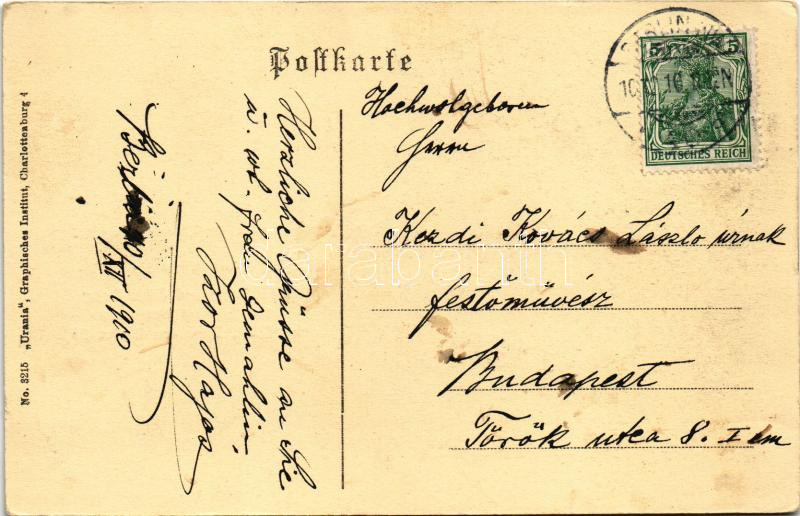 Postkarte
No. 3215 „Urania“, Graphisches Institut, Charlottenburg 4
Berlin 10/XII 1910
Herzliche Grüsse an Sie
u. wb. Frau Gemahlin
Hajós
Hochwolgeboren
Herrn
Kezdi Kovács László úrnak
festőművész
Budapest
Török utca 8. I em
5 5
DEUTSCHES REICH
BERLIN
darabanth